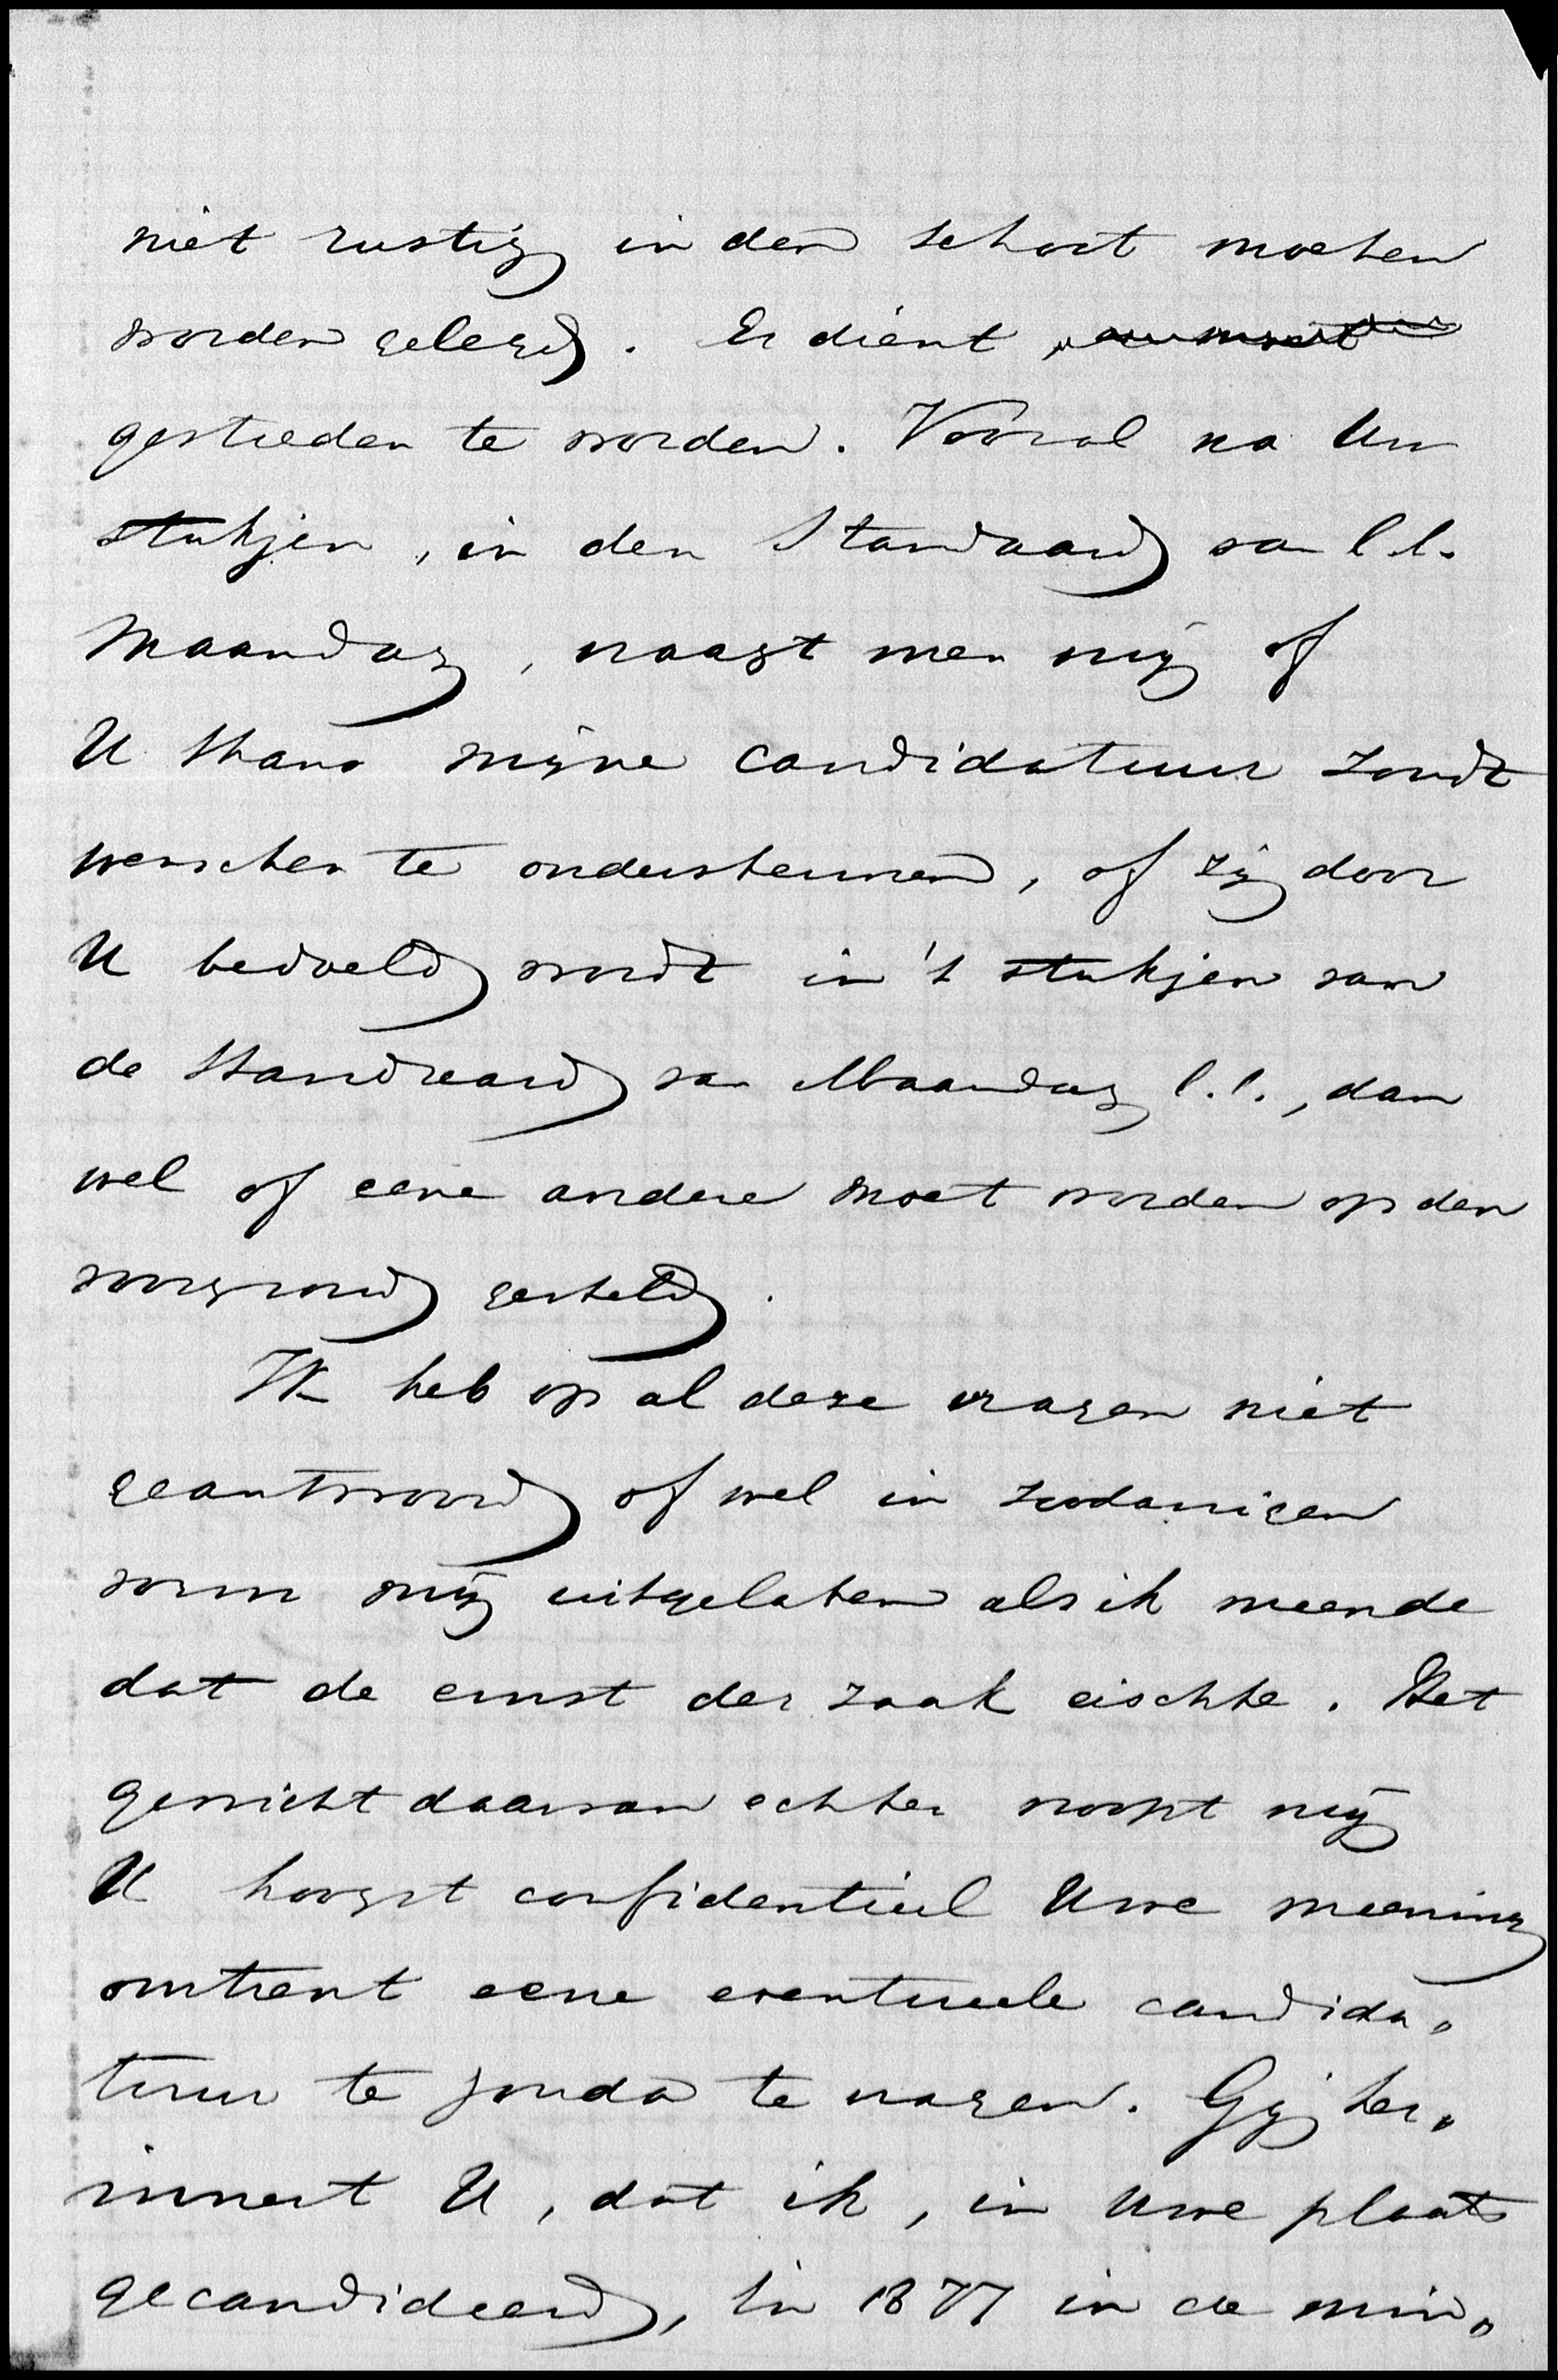 niet rustig in den schoot moeten
worden gelegd. Er dient
gestreden te worden. Vooral na Uw
stukjen, in den Standaard van l.l.
Maandag, vraagt men mij of
U thans mijne candidatuur zoudt
wenschen te ondersteunen, of zij door
U bedoeld wordt in 't stukjen van
de Standaard van Maandag l.l., dan
wel of eene andere moet worden op den
voorgrond gesteld.
Ik heb op al deze vragen niet
geantwoord of wel in zoodanigen
vorm mij uitgelaten als ik meende
dat de ernst der zaak eischte. Het
gewicht daarvan echter noopt mij
U hoogst confidentieel Uwe meening
omtrent eene eventueele candida„
tuur te Gouda te vragen. Gij her„
innert U, dat ik, in Uwe plaats
gecandideerd, in 1877 in de min„